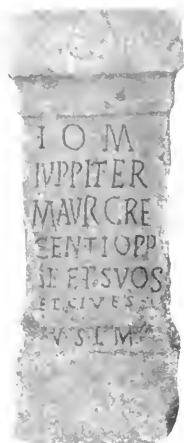 I O M
IVPPITER
MAVR CRE
SENTIO PP
SE ET SVOS
ET CIVES
V S L M